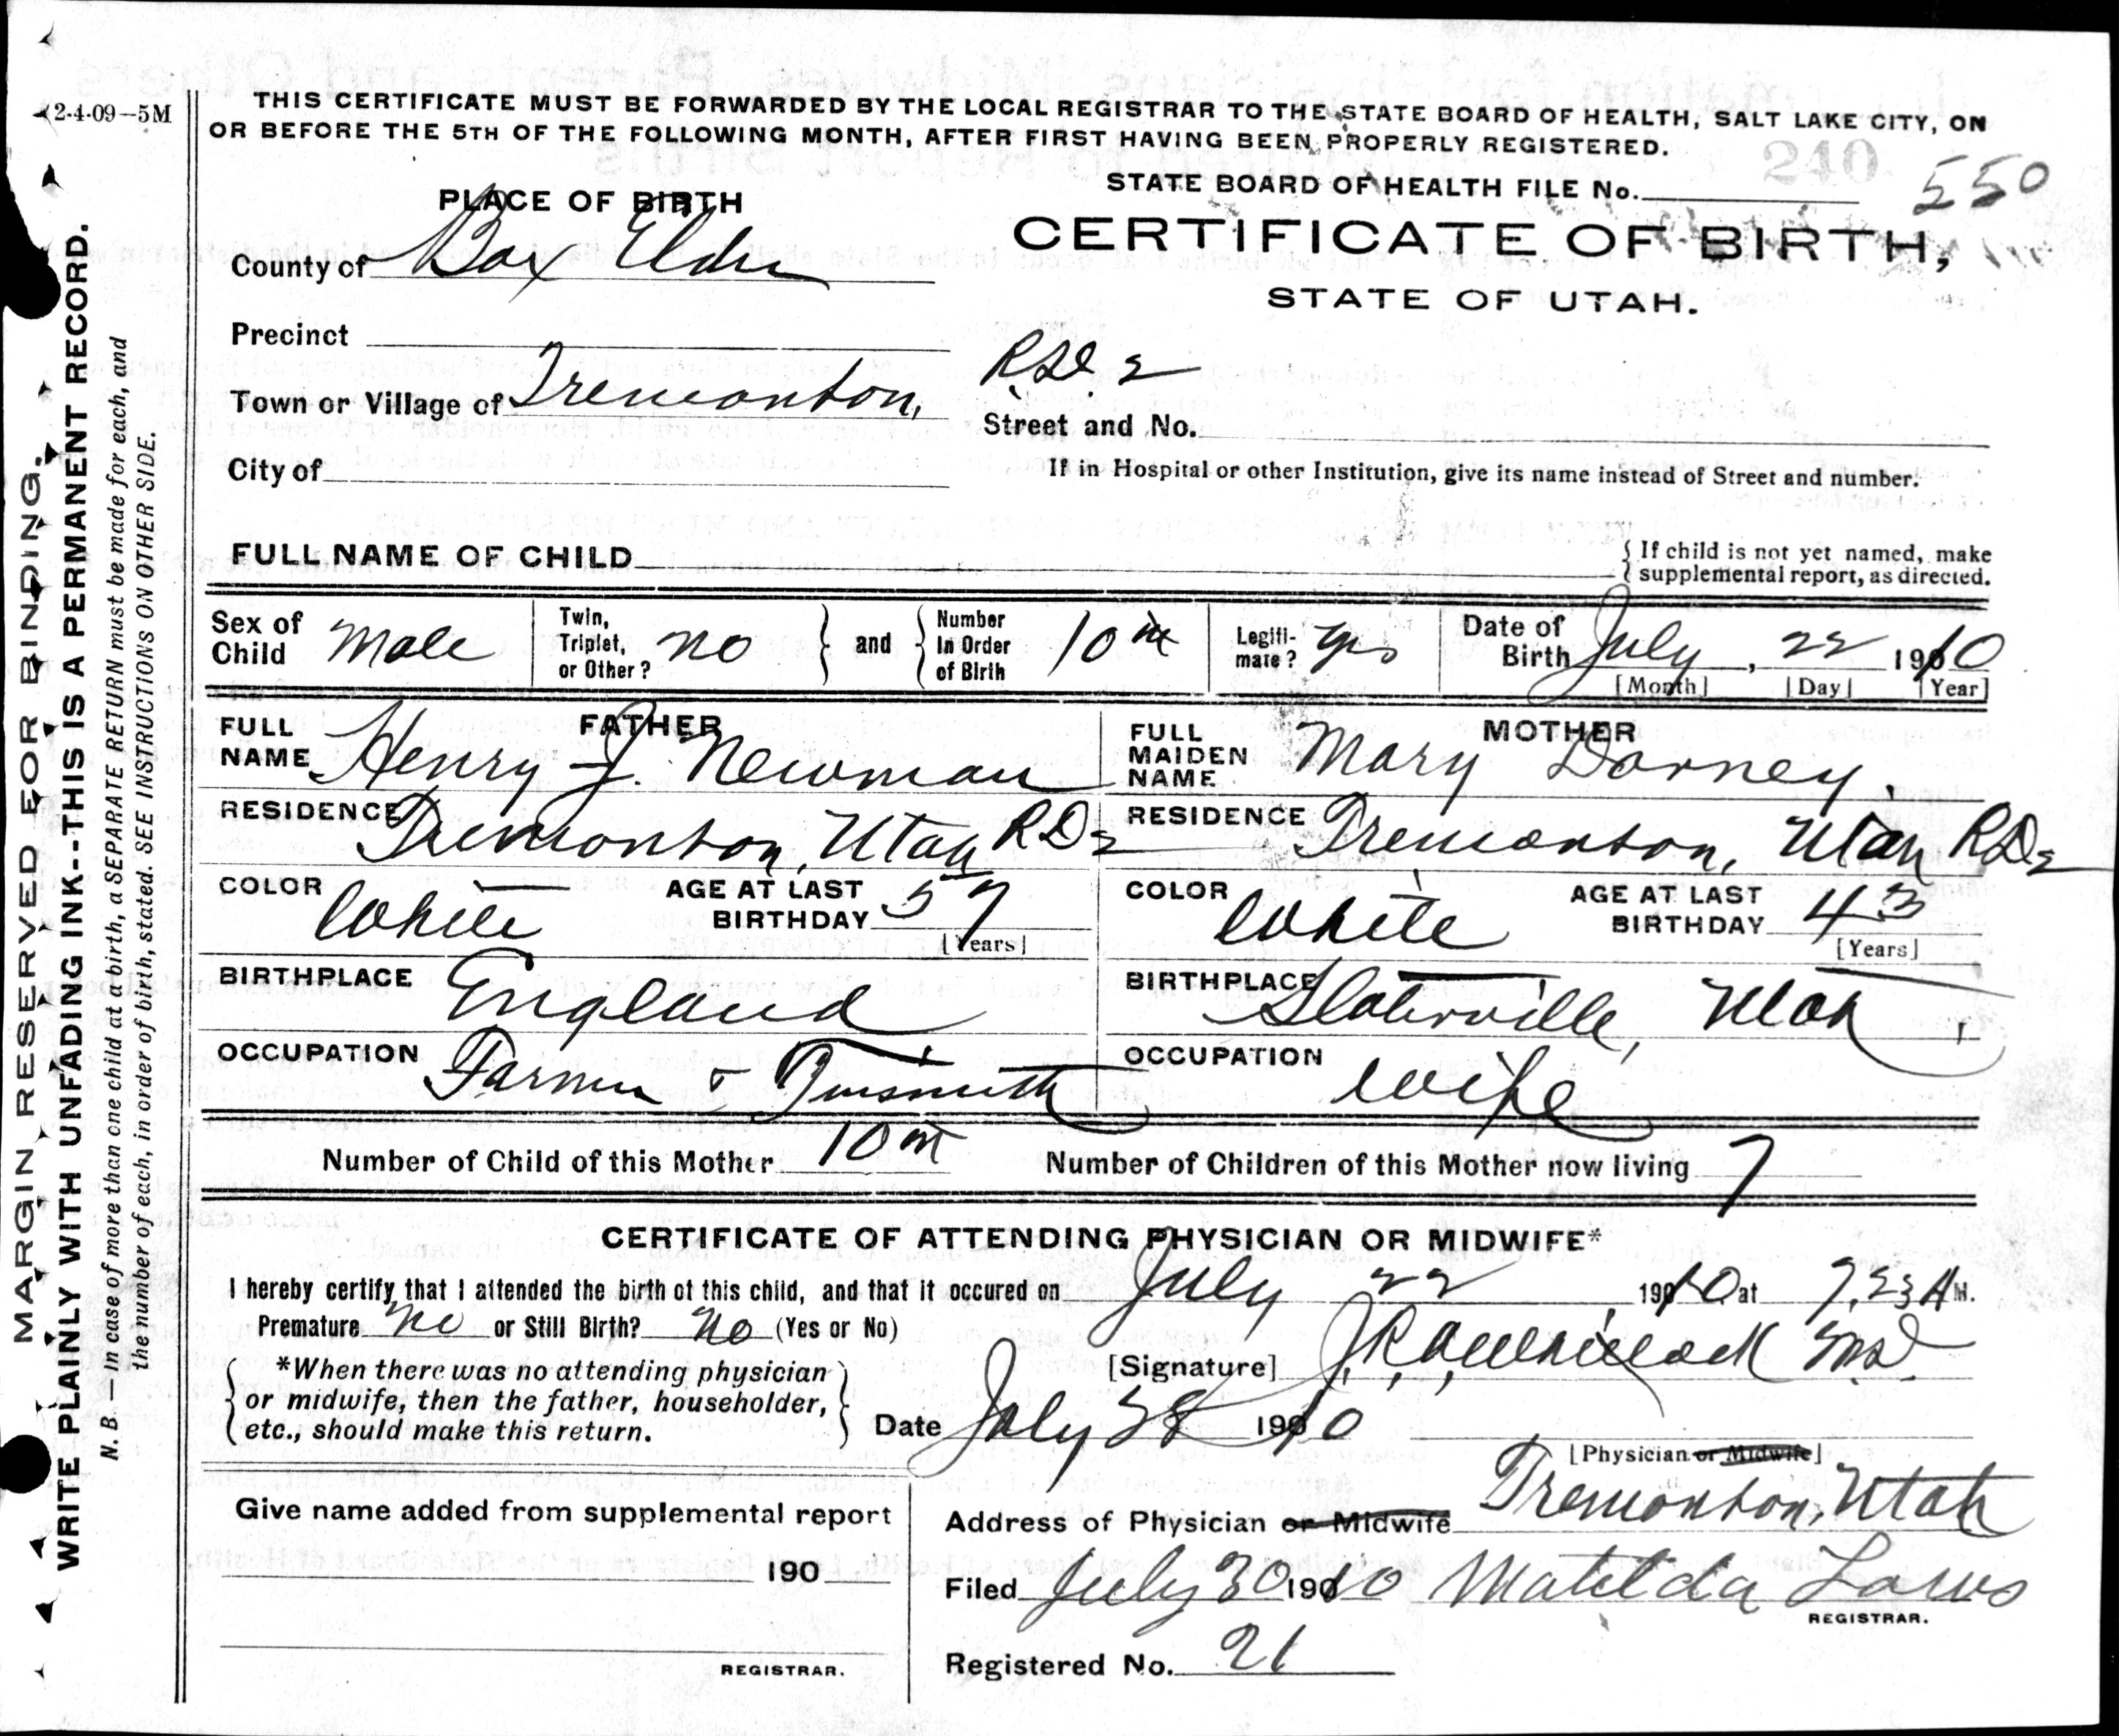 2-4-09—5M
THIS CERTIFICATE MUST BE FORWARDED BY THE LOCAL REGISTRAR TO THE STATE BOARD OF HEALTH, SALT LAKE CITY, ON
OR BEFORE THE 5TH OF THE FOLLOWING MONTH, AFTER FIRST HAVING BEEN PROPERLY REGISTERED.
STATE BOARD OF HEALTH FILE No. 240 550
PLACE OF BIRTH
CERTIFICATE OF BIRTH,
STATE OF UTAH.
County of Box Elder
Precinct
Town or Village of Tremonton,
R.D. 2
Street and No.
City of
If in Hospital or other Institution, give its name instead of Street and number.
FULL NAME OF CHILD
{ If child is not yet named, make
supplemental report, as directed.
Sex of Child Male
Twin, Triplet, or Other? no } and { Number In Order of Birth 10th
Legiti-mate? yes
Date of Birth July, 22 1910
[Month] [Day] [Year]
FATHER
FULL NAME Henry J. Newman
MOTHER
FULL MAIDEN NAME Mary Dorney
RESIDENCE Tremonton, Utah RD2
RESIDENCE Tremonton, Utah RD2
COLOR White
AGE AT LAST BIRTHDAY 57
[Years]
COLOR White
AGE AT LAST BIRTHDAY 43
[Years]
BIRTHPLACE England
BIRTHPLACE Slaterville, Utah
OCCUPATION Farmer & Tinsmith
OCCUPATION wife
Number of Child of this Mother 10th
Number of Children of this Mother now living 7
CERTIFICATE OF ATTENDING PHYSICIAN OR MIDWIFE*
I hereby certify that I attended the birth of this child, and that it occured on July 22 1910 at 7,23 A M.
Premature no or Still Birth? no (Yes or No)
*When there was no attending physician
or midwife, then the father, householder,
etc., should make this return.
[Signature] M.D.
Date July 28 1910
[Physician or Midwife]
Address of Physician or Midwife Tremonton, Utah
Give name added from supplemental report
190
REGISTRAR.
Filed July 30 1910 Matilda
REGISTRAR.
Registered No. 21
MARGIN RESERVED FOR BINDING.
WRITE PLAINLY WITH UNFADING INK--THIS IS A PERMANENT RECORD.
N. B.—In case of more than one child at a birth, a SEPARATE RETURN must be made for each, and
the number of each, in order of birth, stated. SEE INSTRUCTIONS ON OTHER SIDE.